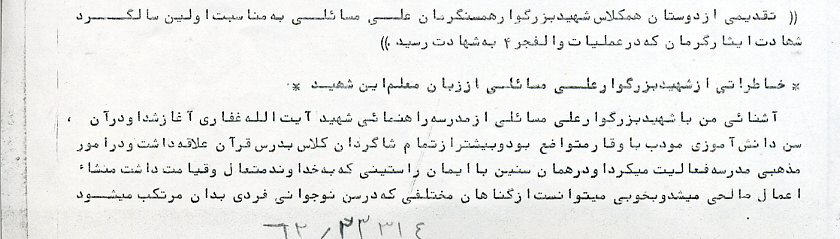 (( تقدیمی ازدوستان همکلاس شهیدبزرگوارهمسنگرمان علی مسائلی به مناسبت اولین سالگرد
شهادت ایثارگرمان که درعملیات والفجر ۴ به شهادت رسید.))
* خاطراتی ازشهیدبزرگوارعلی مسائلی اززبان معلم این شهید *
آشنائی من با شهیدبزرگوارعلی مسائلی ازمدرسه راهنمائی شهید آیت الله غفاری آغازشداودرآن
سن دانش آموزی مودب با وقارمتواضع بودوبیشترازتمام شاگردان کلاس بدرس قرآن علاقه داشت ودرامور
مذهبی مدرسه فعالیت میکرداودرهمان سنین با ایمان راستینی که به خداوندمتعال وقیامت داشت منشاء
اعمال صالحی میشدوبخوبی میتوانست ازگناهان مختلفی که درسن نوجوانی فردی بدان مرتکب میشود